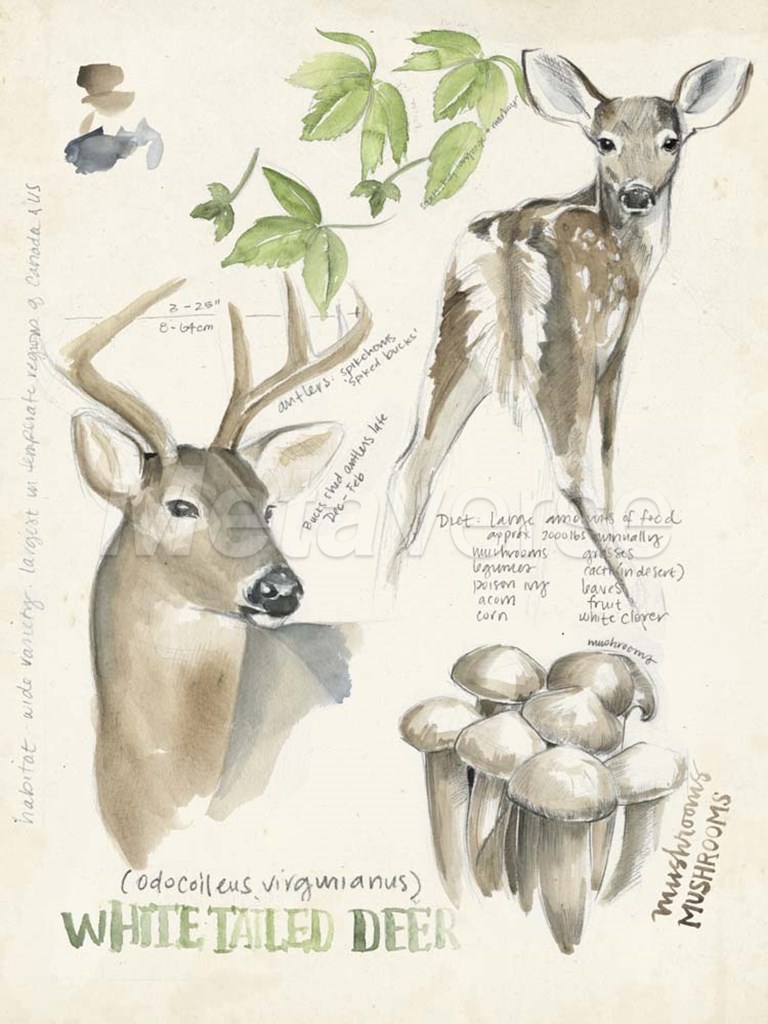 3-25"
8-64cm
antlers: spikehorns
'spiked bucks'
Bucks shed antlers late
Dec-Feb
habitat wide variery. largest in temperate regions of Canada & US
Metaverse
Diet: Large amounts of food
approx 2000lbs annually
mushrooms grasses
legumes cacti (in desert)
poison ivy leaves
acorn fruit
corn white clover
mushrooms
mushrooms
MUSHROOMS
(odocoileus virginianus)
WHITE TAILED DEER